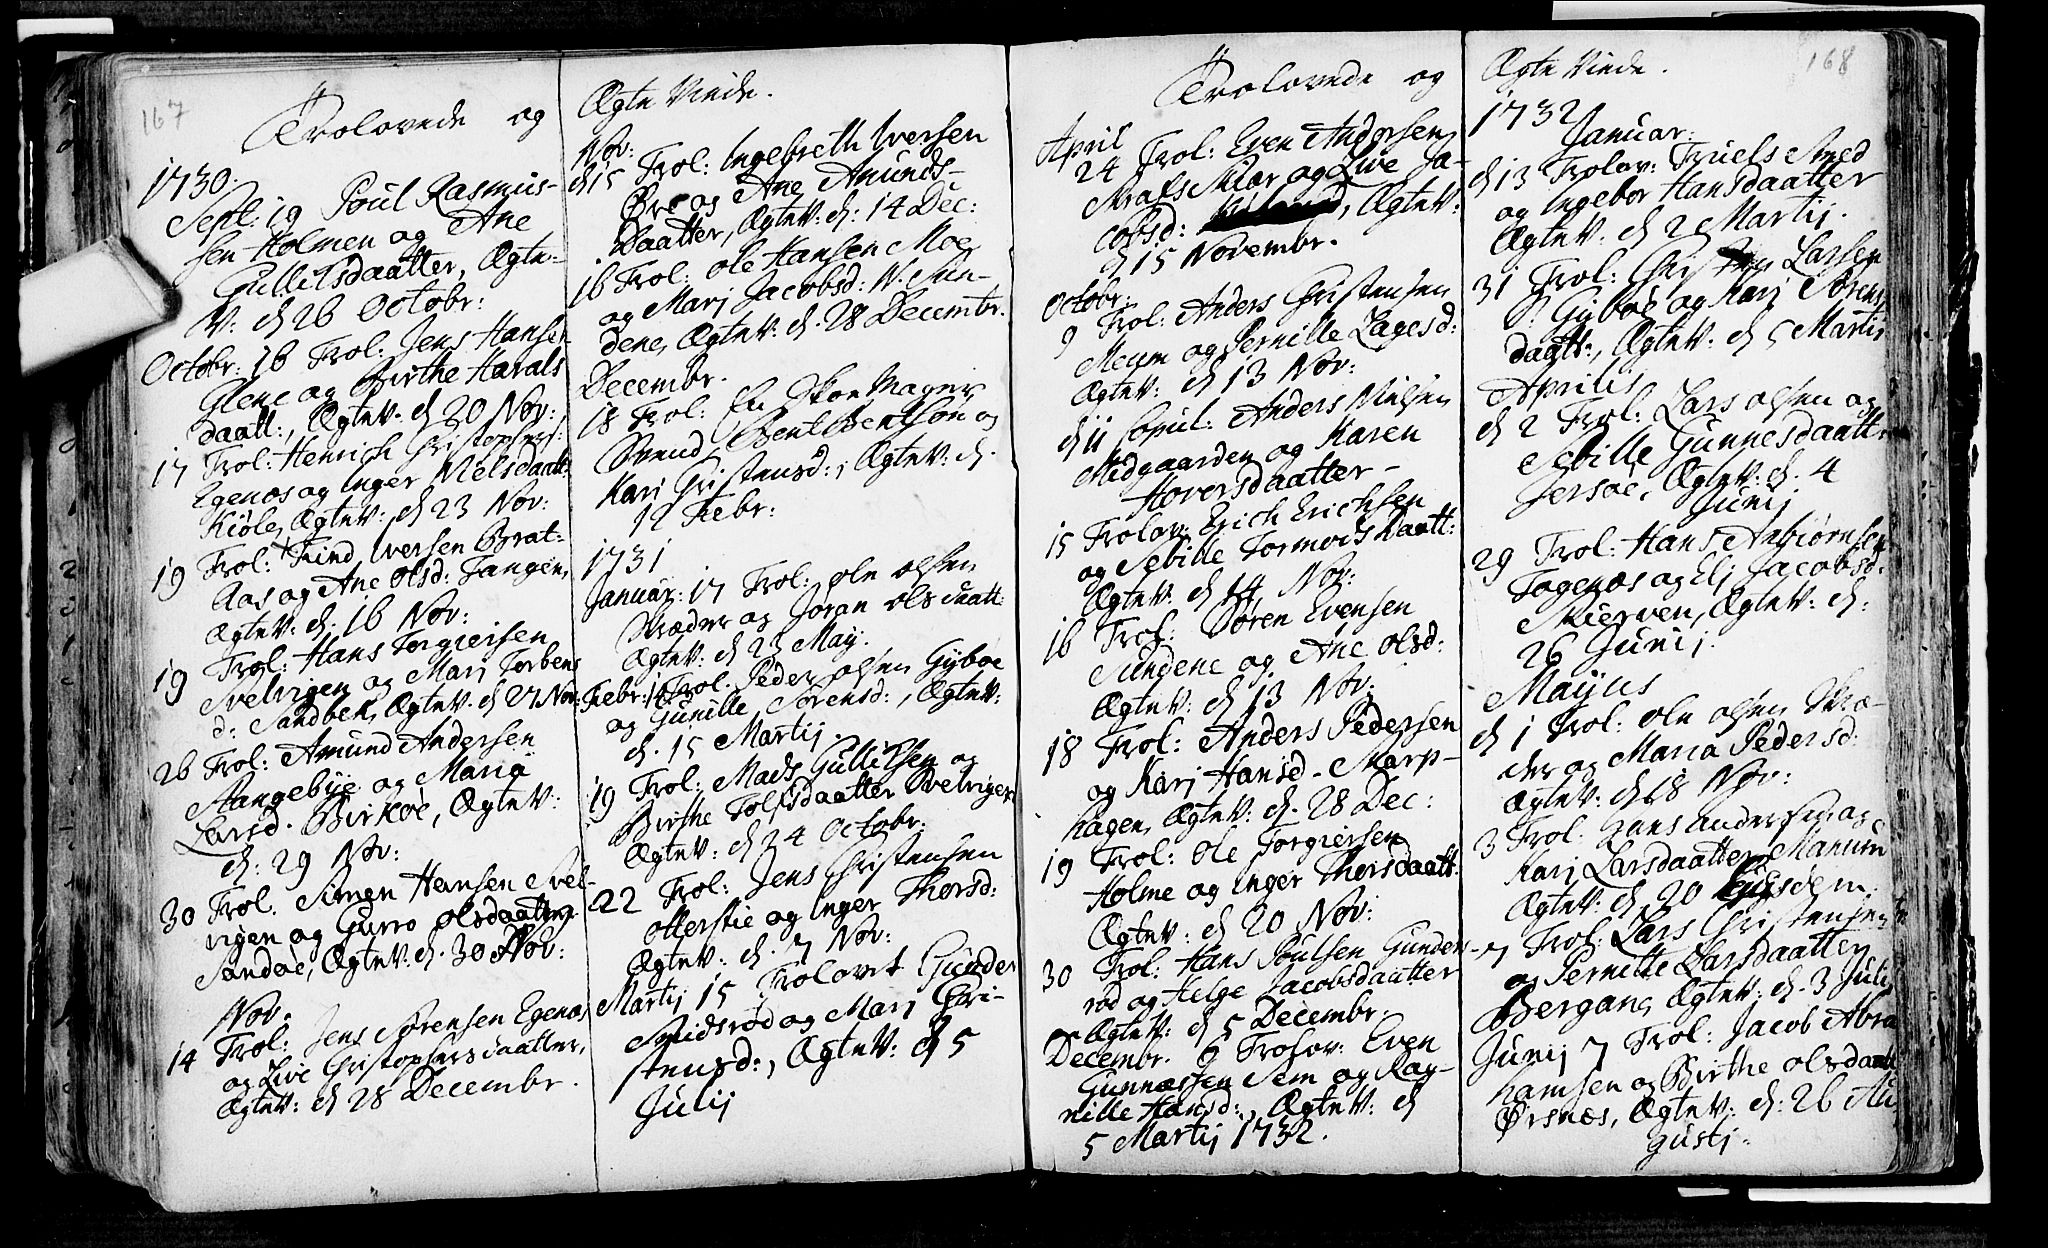 167
Trolovede og
1730.
Sept: 19 Poul Rasmus-
sen Holmen og Ane
Gullilsdaatter, Ægte-
V: d 26 Octobr:
Octobr: 16 Trol: Jens Hansen
Glene og Birthe Harals
daatt:, Ægtev: d 20 Nov:
17 Trol: Henrich Christophers:
Egenæs og Inger Nielsdaatt:
Kiöle, Ægtev: d 23 Nov:
19 Trol: Find Iversen Brat-
Aas og Ane Olsd: Tangen,
Ægtev: d. 16 Nov:
19 Trol: Hans Torgiersen
Svelvigen og Mari Torbens
d: Sandben, Ægtev. d 27 Nov:
26 Trol: Amund Andersen
Stangebÿe og Maria
Larsd. Birköe, Ægtev:
d: 29 Nov:
30 Trol. Simen Hansen Svel-
vigen og Gurro Olsdaatter
Sandöe, Ægtev: d. 30 Nov:
Nov.
14 Trol: Jens Sörensen Egenæs
og Live Christophersdaatter,
Ægtev: d 28 Decembr.
Ægte Viede.
Nov:
d 15 Trol: Ingebreth Iversen
Öre og Ane Amunds-
Daatter, Ægtev: d: 14 Dec:
16 Trol: Ole Hansen Moe
og Mari Jacobsd: N: Sun-
dene, Ægtev: d. 28 Decembr.
Decembr.
18 Trol: En Skoe Mager
Svend Bent Bentsön og
Kari Christensd:, Ægtev: d.
12 Febr:
1731
Januar: 17 Trol: Ole Olsen
Skræder og Joran Olsdaatt:
Ægtev: d 23 May.
Febr: 16 Trol. Peder Olsen Gÿböe
og Gunille Sörensd:, Ægtev:
d. 15 Martij.
19 Trol: Mads Gullilsen og
Birthe Tolfsdaatter Svelvigen
Ægtev: d 24 Octobr:
22 Trol: Jens Christensen
Otterstie og Inger Thorsd:
Ægtev: d. 7 Nov:
Martij 15 Trolovet Gunder
Smidsröd og Mari Chri-
stensd:, Ægtev: d 5
Julij
168
Trolovede og
April
24 Trol: Even Andersen
og Live Ja-
cobsd: , Ægtev:
d 15 Novembr.
Octobr:
9 Trol: Anders Christensen
Meum og Pernille Lagesd:
Ægtev: d 13 Nov:
d 11 Copul: Anders Nielsen
Midgaarden og Karen
Hoversdaatter -
15 Trolov: Erich Erichsen
og Sebille Tormodsdaatt:
Ægtev: d 14 Nov:
16 Trol: Sören Evensen
Sundene og Ane Olsd:
Ægtev: d 13 Nov:
18 Trol: Anders Pedersen
og Kari Hansd - Marp-
hagen, Ægtev: d. 28 Dec:
19 Trol: Ole Torgiersen
Holme og Inger Thorsdaatt:
Ægtev: d 20 Nov:
30 Trol: Hans Poulsen Gunders-
röd og Helge Jacobsdaatter
Ægtev: d 5 Decembr.
Decembr. 6 Trolov: Even
Gunnersen Sem og Rag-
nille Hansd:, Ægtev: d
5 Martij 1732.
Ægte Viede.
1732
Januar:
d 13 Trolov: Truels Smed
og Ingebor Hansdaatter
Ægtev: d 2 Martij.
31 Trol: Larsen
Gÿböe og Kari Sörens
daatt:, Ægtev: d 5 Martij
Aprilis
d 2 Trol: Lars Olsen og
Sebille Gunnesdaatter
Jersöe, Ægtev: d. 4
Junij
29 Trol: Hans Anbiörnsen
Togenæs og Eli Jacobsd:
Skierven, Ægtev: d:
26 Junij.
Majus
d 1 Trol: Ole Olsen Skræ-
der og Maria Pedersd:
Ægtev: d 18 Nov:
3 Trol: Hans Andersen og
Kari Larsdaatter Manum
Ægtev: d 20 Ejusdem.
7 Trol: Lars Christensen
og Pernille Larsdaatter
Bergan, Ægtev: d. 3 Julij
Junij 7 Trol: Jacob Abra
hamsen og Birthe Olsdaatt
Örsnæs, Ægtev: d: 26 Au
gustj.